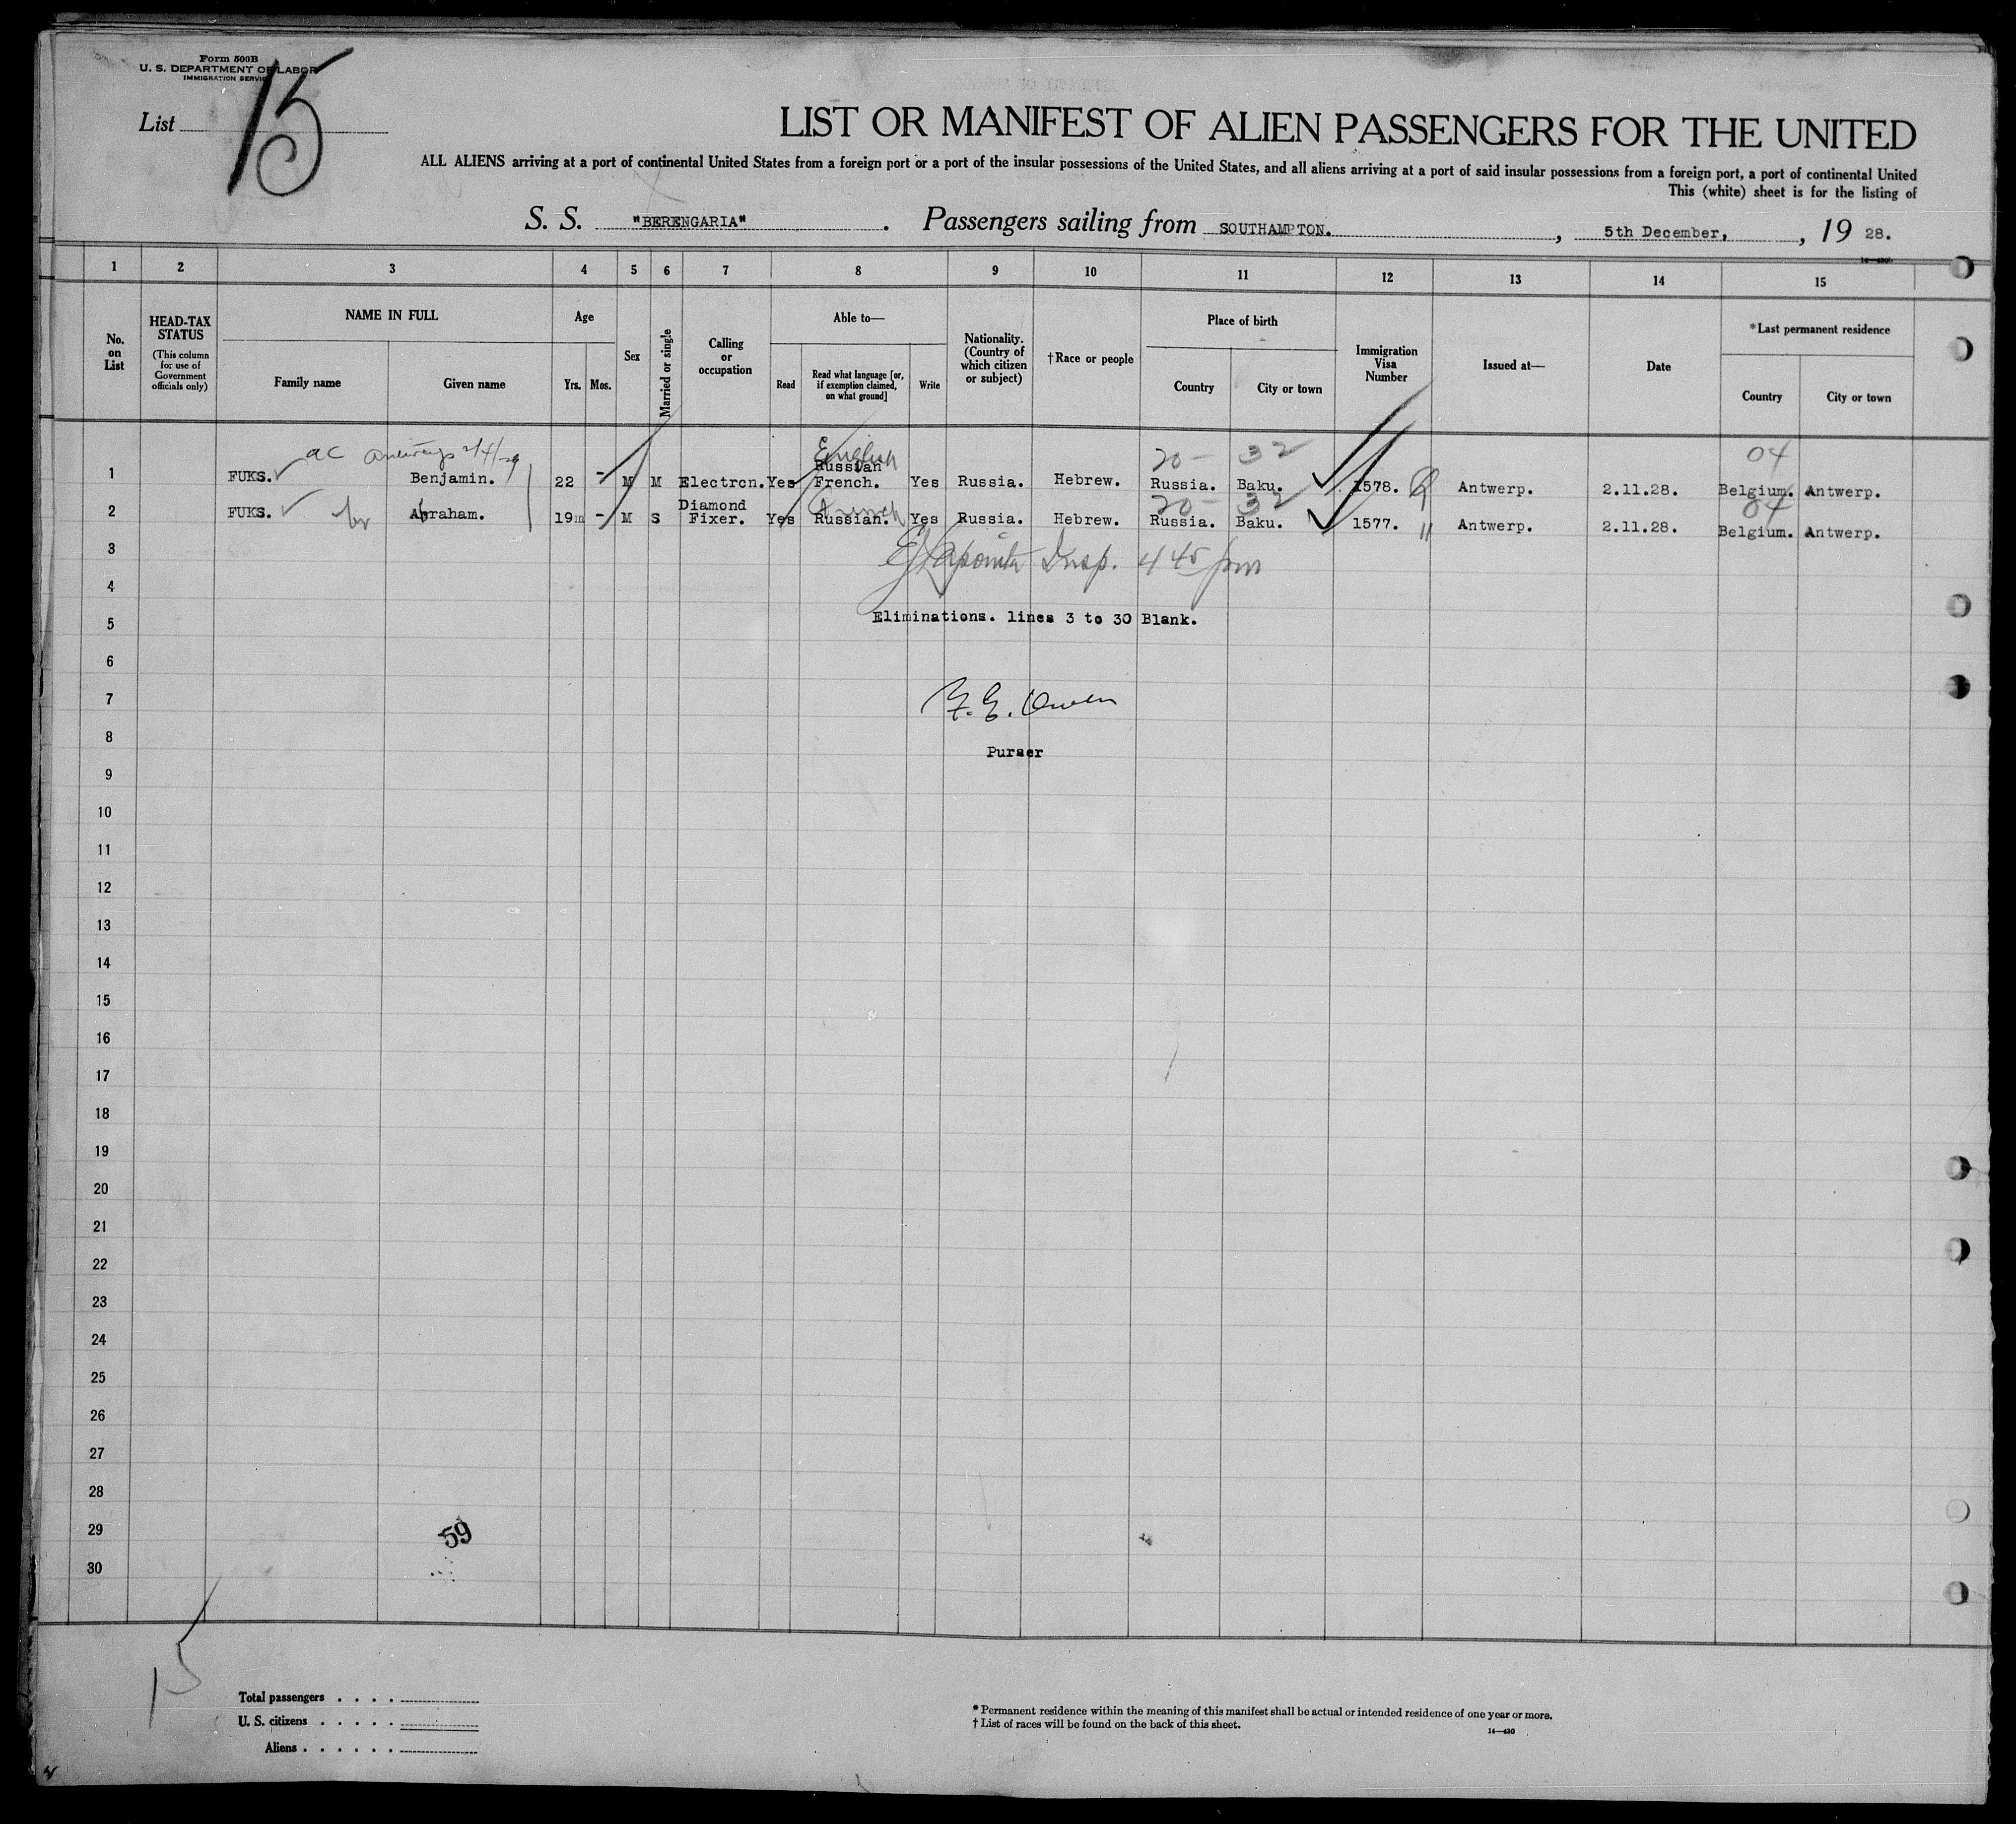 Form 500B
U. S. DEPARTMENT OF LABOR
IMMIGRATION SERVICE
List 15
LIST OR MANIFEST OF ALIEN PASSENGERS FOR THE UNITED
ALL ALIENS arriving at a port of continental United States from a foreign port or a port of the insular possessions of the United States, and all aliens arriving at a port of said insular possessions from a foreign port, a port of continental United
This (white) sheet is for the listing of
S. S. "BERENGARIA". Passengers sailing from SOUTHAMPTON., 5th December,, 19 28.
14—430
1 2 3 4 5 6 7 8 9 10 11 12 13 14 15
No. on List
HEAD-TAX STATUS
(This column for use of Government officials only)
NAME IN FULL
Family name
Given name
Age
Yrs. Mos.
Sex
Married or single
Calling or occupation
Able to—
Read
Read what language [or, if exemption claimed, on what ground]
Write
Nationality. (Country of which citizen or subject)
†Race or people
Place of birth
Country
City or town
Immigration Visa Number
Issued at—
Date
*Last permanent residence
Country
City or town
English 20- 32 04
1 FUKS. Benjamin. 22 - M M Electrcn. Yes Russian French. Yes Russia. Hebrew. Russia. Baku. 1578. Antwerp. 2.11.28. Belgium. Antwerp.
French 20- 32 04
2 FUKS. Abraham. 19m - M S Diamond Fixer. Yes Russian. Yes Russia. Hebrew. Russia. Baku. 1577. " Antwerp. 2.11.28. Belgium. Antwerp.
3 Insp. 4 45 pm
4
5 Eliminations. lines 3 to 30 Blank.
6
7 Owen
8 Purser
9
10
11
12
13
14
15
16
17
18
19
20
21
22
23
24
25
26
27
28
29 59
30
15
Total passengers . . . .
U. S. citizens . . . . .
Aliens . . . . . .
* Permanent residence within the meaning of this manifest shall be actual or intended residence of one year or more.
† List of races will be found on the back of this sheet.
14—430